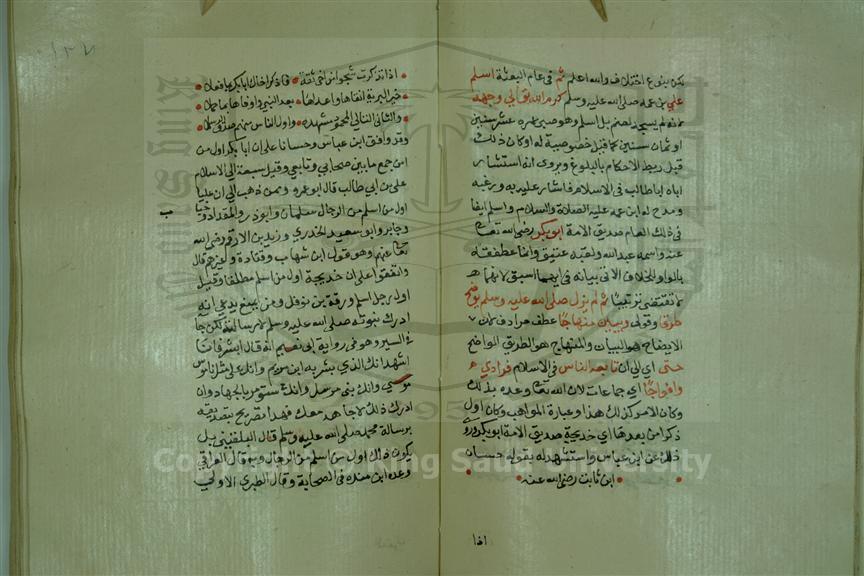 لكن بنوع اختلاف والله اعلم ثم في عام البعثة اسلم
علي بن عمه صلى الله عليه وسلم كرم الله تعالى وجهه
لانه لم يسجد لصنم بل اسلم وهو صبي عمره عشر سنين
او ثمان سنين كما قيل خصوصية له او كان ذلك
قبل ربط الاحكام بالبلوغ ويروى انه استشار
اباه ابا طالب في الاسلام فاشار عليه به ورغبه
ومدح له ابن عمه عليه الصلاة والسلام واسلم ايضا
في ذلك العام صديق الامة ابو بكر رضي الله تعالى
عنه واسمه عبد الله ولقبه عتيق وانما عطفته
بالواو للخلاف الاتي بيانه في ايهما اسبق لانها
لا تقتضي ترتيبا ثم لم يزل صلى الله عليه وسلم يوضح
طرقا وقولي ويبين منهاجا عطف مرادف لان
الايضاح هو البيان والمنهاج هو الطريق الواضح
حتى اي الى ان تابعه الناس في الاسلام فرادي
وافواجا اي جماعات لان الله تعالى وعده بذلك
وكان الامر كذلك هذا وعبارة المواهب وكان اول
ذكر امن بعدها اي خديجة صديق الامة ابو بكر وروى
ذلك عن ابن عباس واستشهد له بقول حسان
ابن ثابت رضي الله عنه
اذا
اذا تذكرت شجوا من اخي ثقة فاذكر اخاك ابا بكر بما فعلا
خير البرية اتقاها واعدلها بعد النبي واوفاها بما حملا
والثاني التالي المحمود مشهده واول الناس منهم صدق الرسلا
وقد وافق ابن عباس وحسانا على ان ابا بكر اول من
اسلم جمع ما بين صحابي وتابعي وقيل سبقه الى الاسلام
علي بن ابي طالب قال ابو عمرو وممن ذهب الى ان عليا
اول من اسلم من الرجال سلمان وابو ذر والمقداد وخباب
وجابر وابو سعيد الخدري وزيد بن الارقم رضي الله
تعالى عنهم وهو قول ابن شهاب وقتادة وغيرهم قال
واتفقوا على ان خديجة اول من اسلم مطلقا وقيل
اول رجل اسلم ورقة بن نوفل ومن يمنع يدعي انه
ادرك نبوته صلى الله عليه وسلم لا رسالته لكن جا
في السير وهو في رواية ابي نعيم انه قال ابشر فانا
اشهد انك الذي بشر به ابن مريم وانك على مثل ناموس
موسى وانك نبي مرسل وانك ستؤمر بالجهاد وان
ادرك ذلك لاجاهد معك فهذا تصريح بتصديقه
برسالة محمد صلى الله عليه وسلم قال البلقيني بل
يكون ذلك اول من اسلم من الرجال وبه قال العراقي
وعده ابن منده في الصحابة وقال الطبري الاولى
Copyright © King Saud University